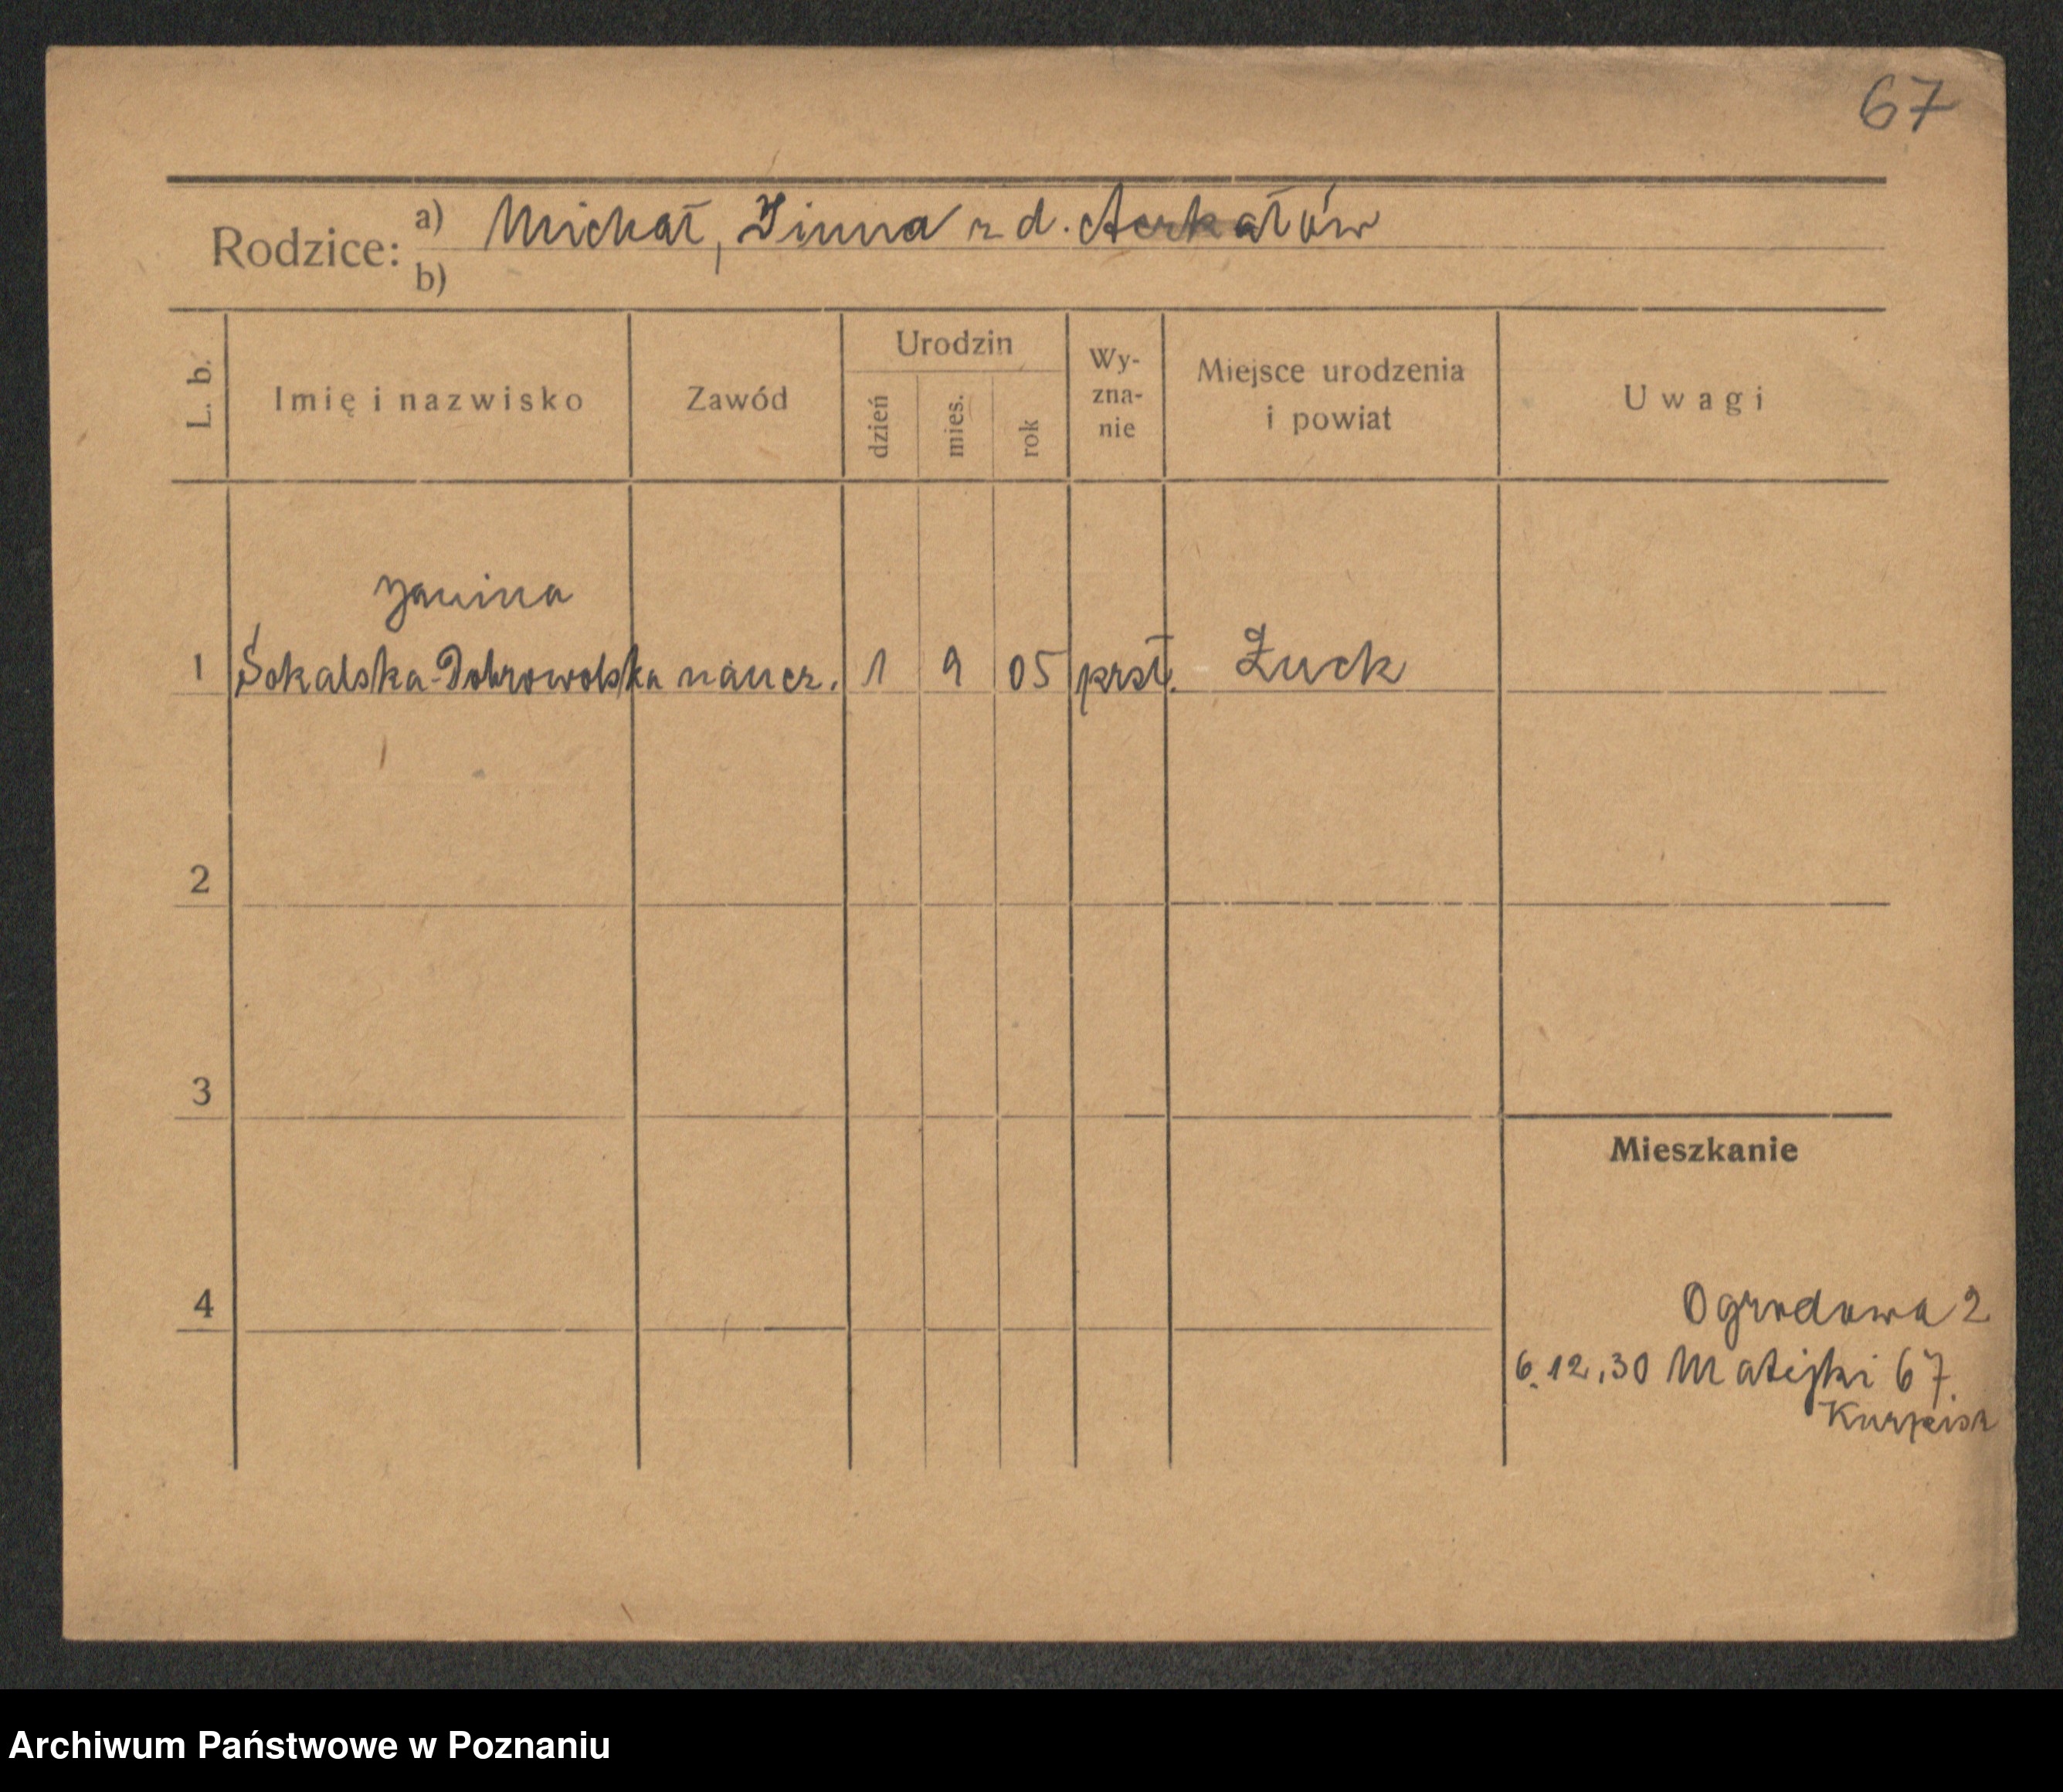 67
Rodzice: a) Michał, Zinna z d. Askałów
b)
L. b. Imię i nazwisko Zawód Urodzin dzień mies. rok Wy-zna-nie Miejsce urodzenia i powiat Uwagi
Janina
1 Sokalska-Dobrowolska naucz. 1 9 05 prsł. Łuck
2
3
Mieszkanie
4
Ogrodowa 2
6.12.30 Matejki 67.
Kurpisz
Archiwum Państwowe w Poznaniu